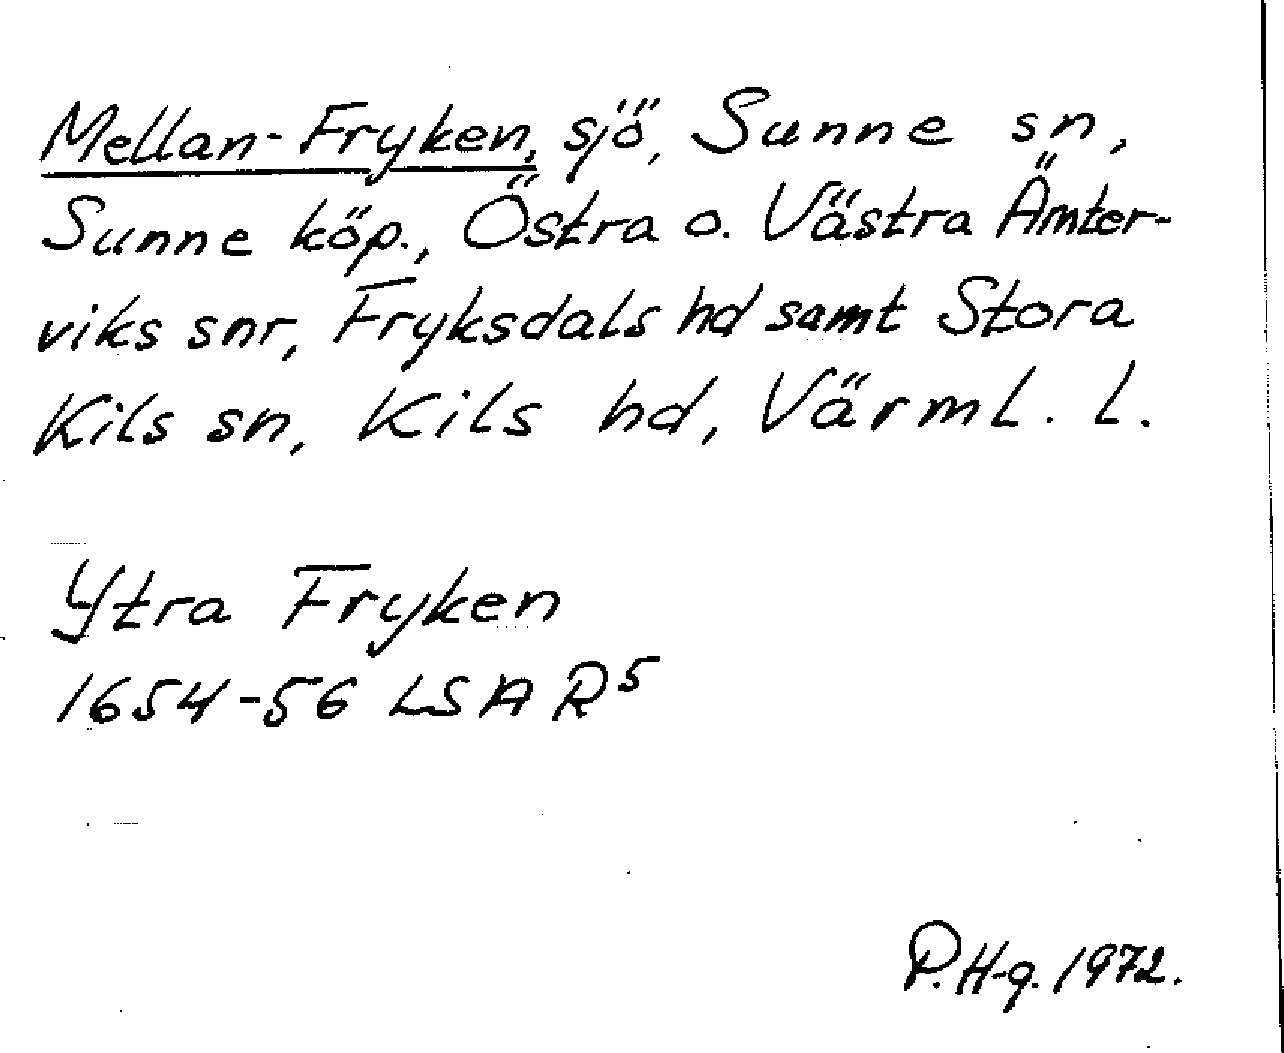 Mellan-Fryken, sjö, Sunne sn,
Sunne köp., Östra o. Västra Ämter-
viks snr, Fryksdals hd samt Stora
Kils sn, Kils hd, Värml. l.
Ytra Fryken
1654-56 LSA R⁵
P. H-g. 1972.